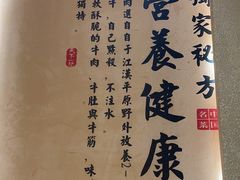 獨家秘方
中国名菜
營養健康
肉選自自于江漢平原野外放養2-
牛，自己黙殺，不注水
致酥脆的牛肉、牛肚與牛筋，味
獨特。